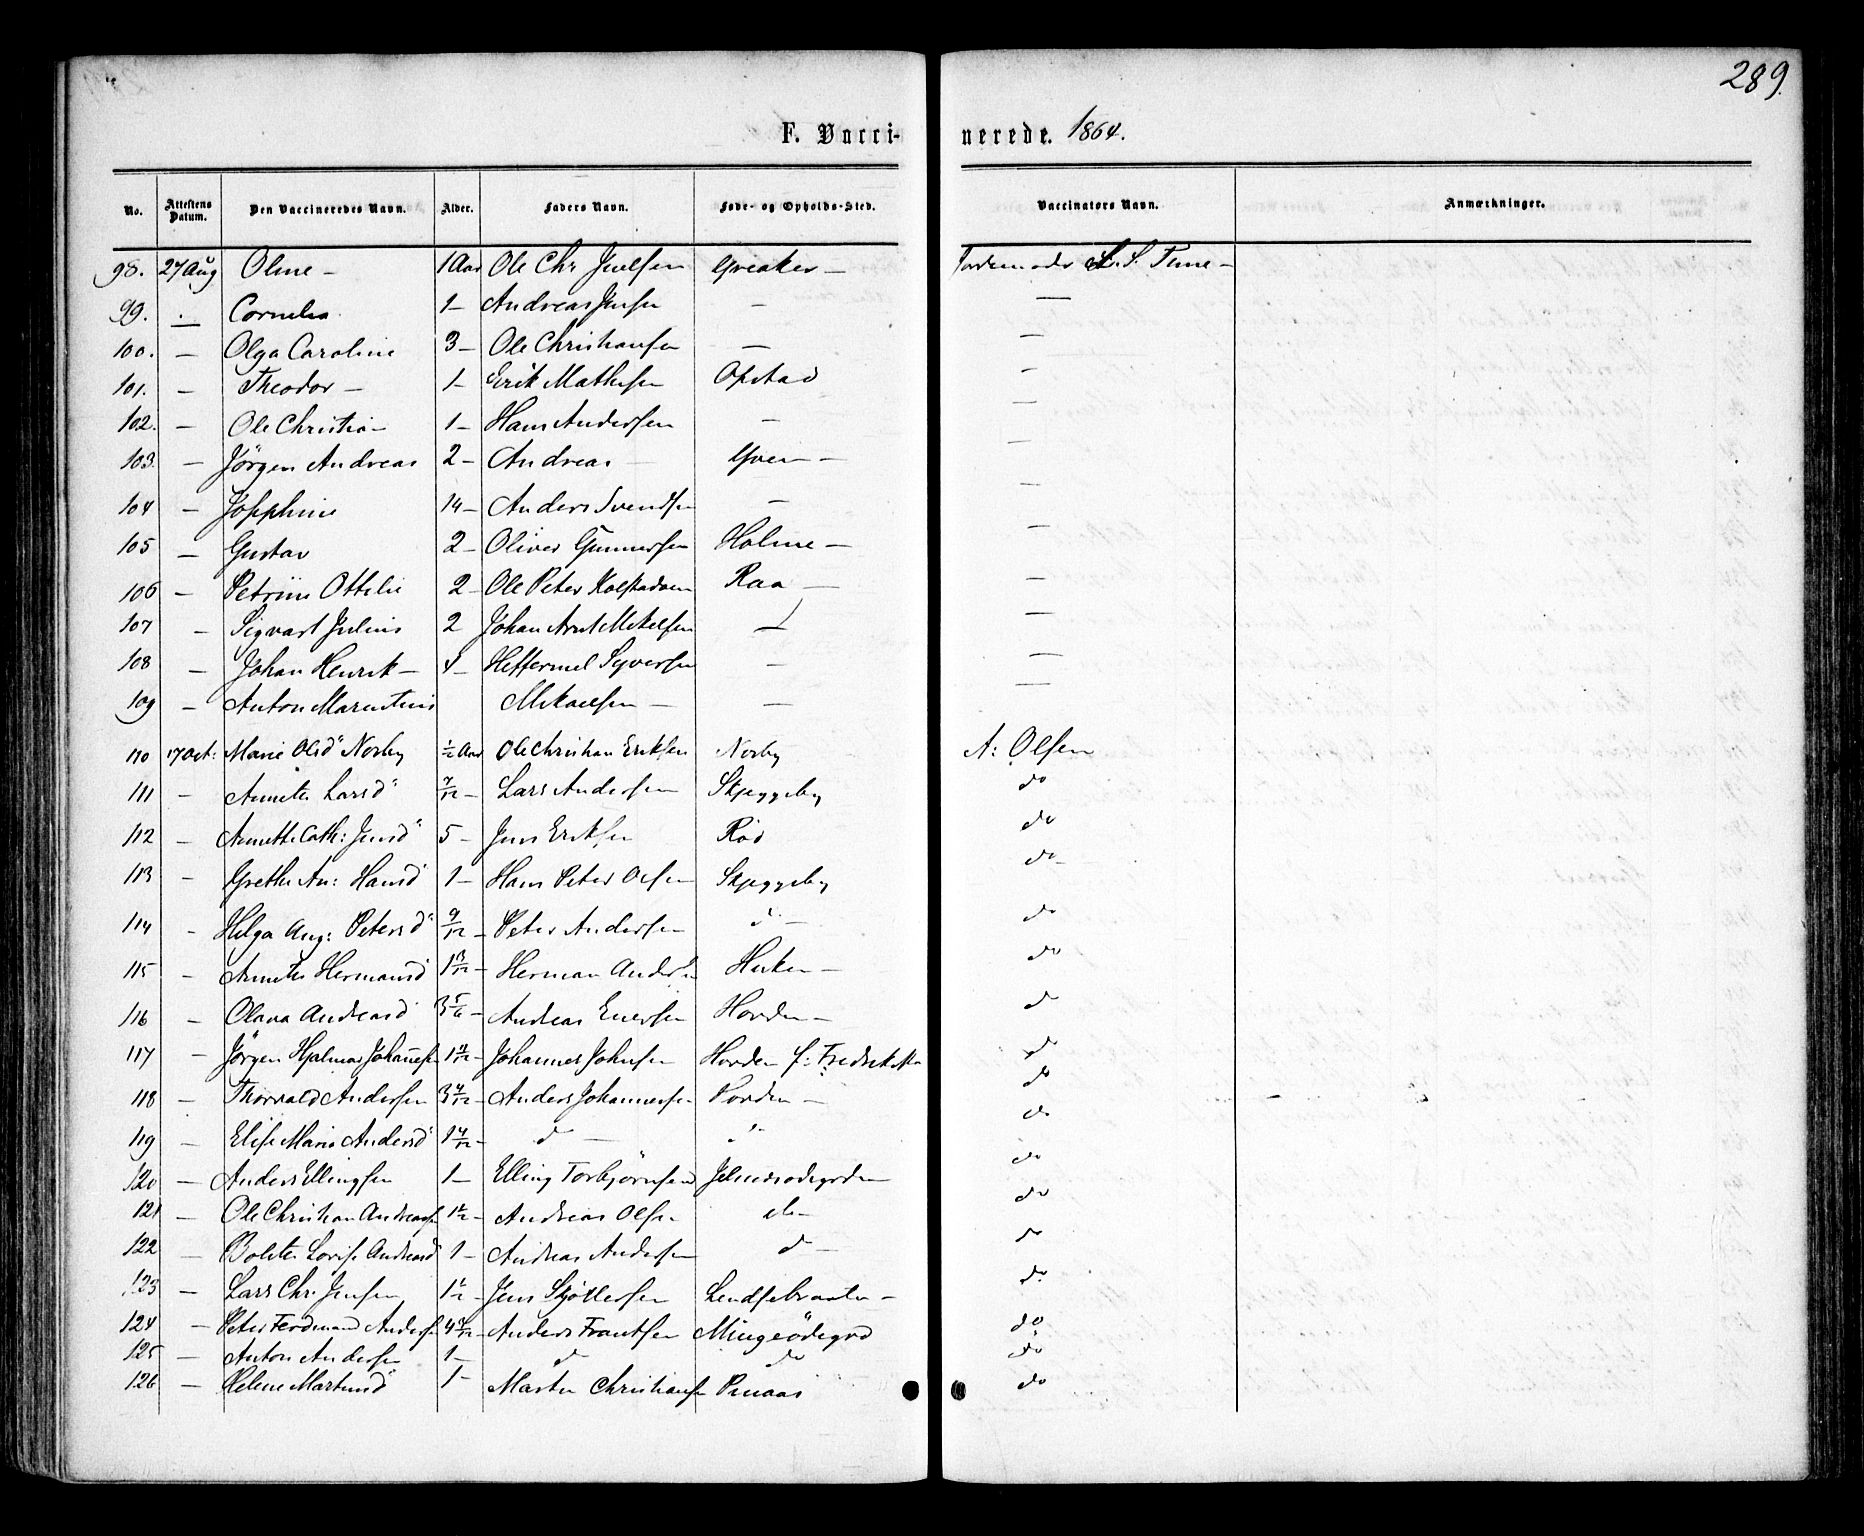 289.
F. Vacci- nerede. 1864.
No. Attestens Datum. Den Vaccineredes Navn. Alder. Faders Navn. Føde- og Opholds-Sted. Vaccinators Navn. Anmærkninger.
98. 27 Aug Oline - 1 Aar Ole Chr Juelsen Greaker - S.
99. - Cornelia 1 - Andreas Jensen - -
100. - Olga Caroline 3 - Ole Christiansen - -
101. - Theodor - 1 - Erik Mathisen Opstad -
102. - Ole Christian 1 - Hans Andersen - -
103. - Jörgen Andreas 2 - Andreas - Yven - -
104 - Josephine 14 - Anders Svendsen - -
105 - Gustav 2 - Oliver Gunnersen Holme - -
106 - Petrine Ottilie 2 - Ole Peter Kolstadven Raa - -
107 - Sigvart Julius 2 Johan Arnt Mikelsen - -
108 - Johan Henrik - 4 - Syversen - -
109 - Anton Marentius Mikaelsen - - -
110 17 Oct: Marie Olsd" Norby ½ Aar Ole Christian Eriksen Norby A: Olsen
111 - Annette Larsd" 7/12 - Lars Andersen Skjeggeby do
112 - Annette Cath: Jensd" 5 - Jens Eriksen Röd do
113 - Grethe An: Hansd" 1 - Hans Peter Olsen Skjeggeby do
114 - Helga Aug: Petersd" 9/12 - Peter Andersen d - do
115 - Annette Hermansd" 1 3/12 - Herman Andersen - do
116 - Olava Andreasd" 3 5/6 - Andreas Enersen Horden - d
117 - Jörgen Hjalmar Johannesen 1 11/12 - Johannes Johnsen Horden f: Fredrikstad do
118 - Thorvald Andersen 3 4/12 - Anders Johannesen Horden - do
119 - Elise Marie Andersd" 1 4/12 - d - d - do
120 - Anders Ellingsen 1 - Elling Torbjörnsen do
121 - Ole Christian Andreasen 1 ½ - Andreas Olsen d - do
122 - Bolette Lovise Andreasd" 1 - Andreas Andersen d - do
123 - Lars Chr. Jensen 1 ½ - Jens Skjöttersen - do
124 - Peter Ferdinand Andersen 4 4/12 - Anders Frantsen Mingeödegrd do
125 - Anton Andersen 1 - d do do
126 - Helene Martinsd" 1 - Martin Christiansen do